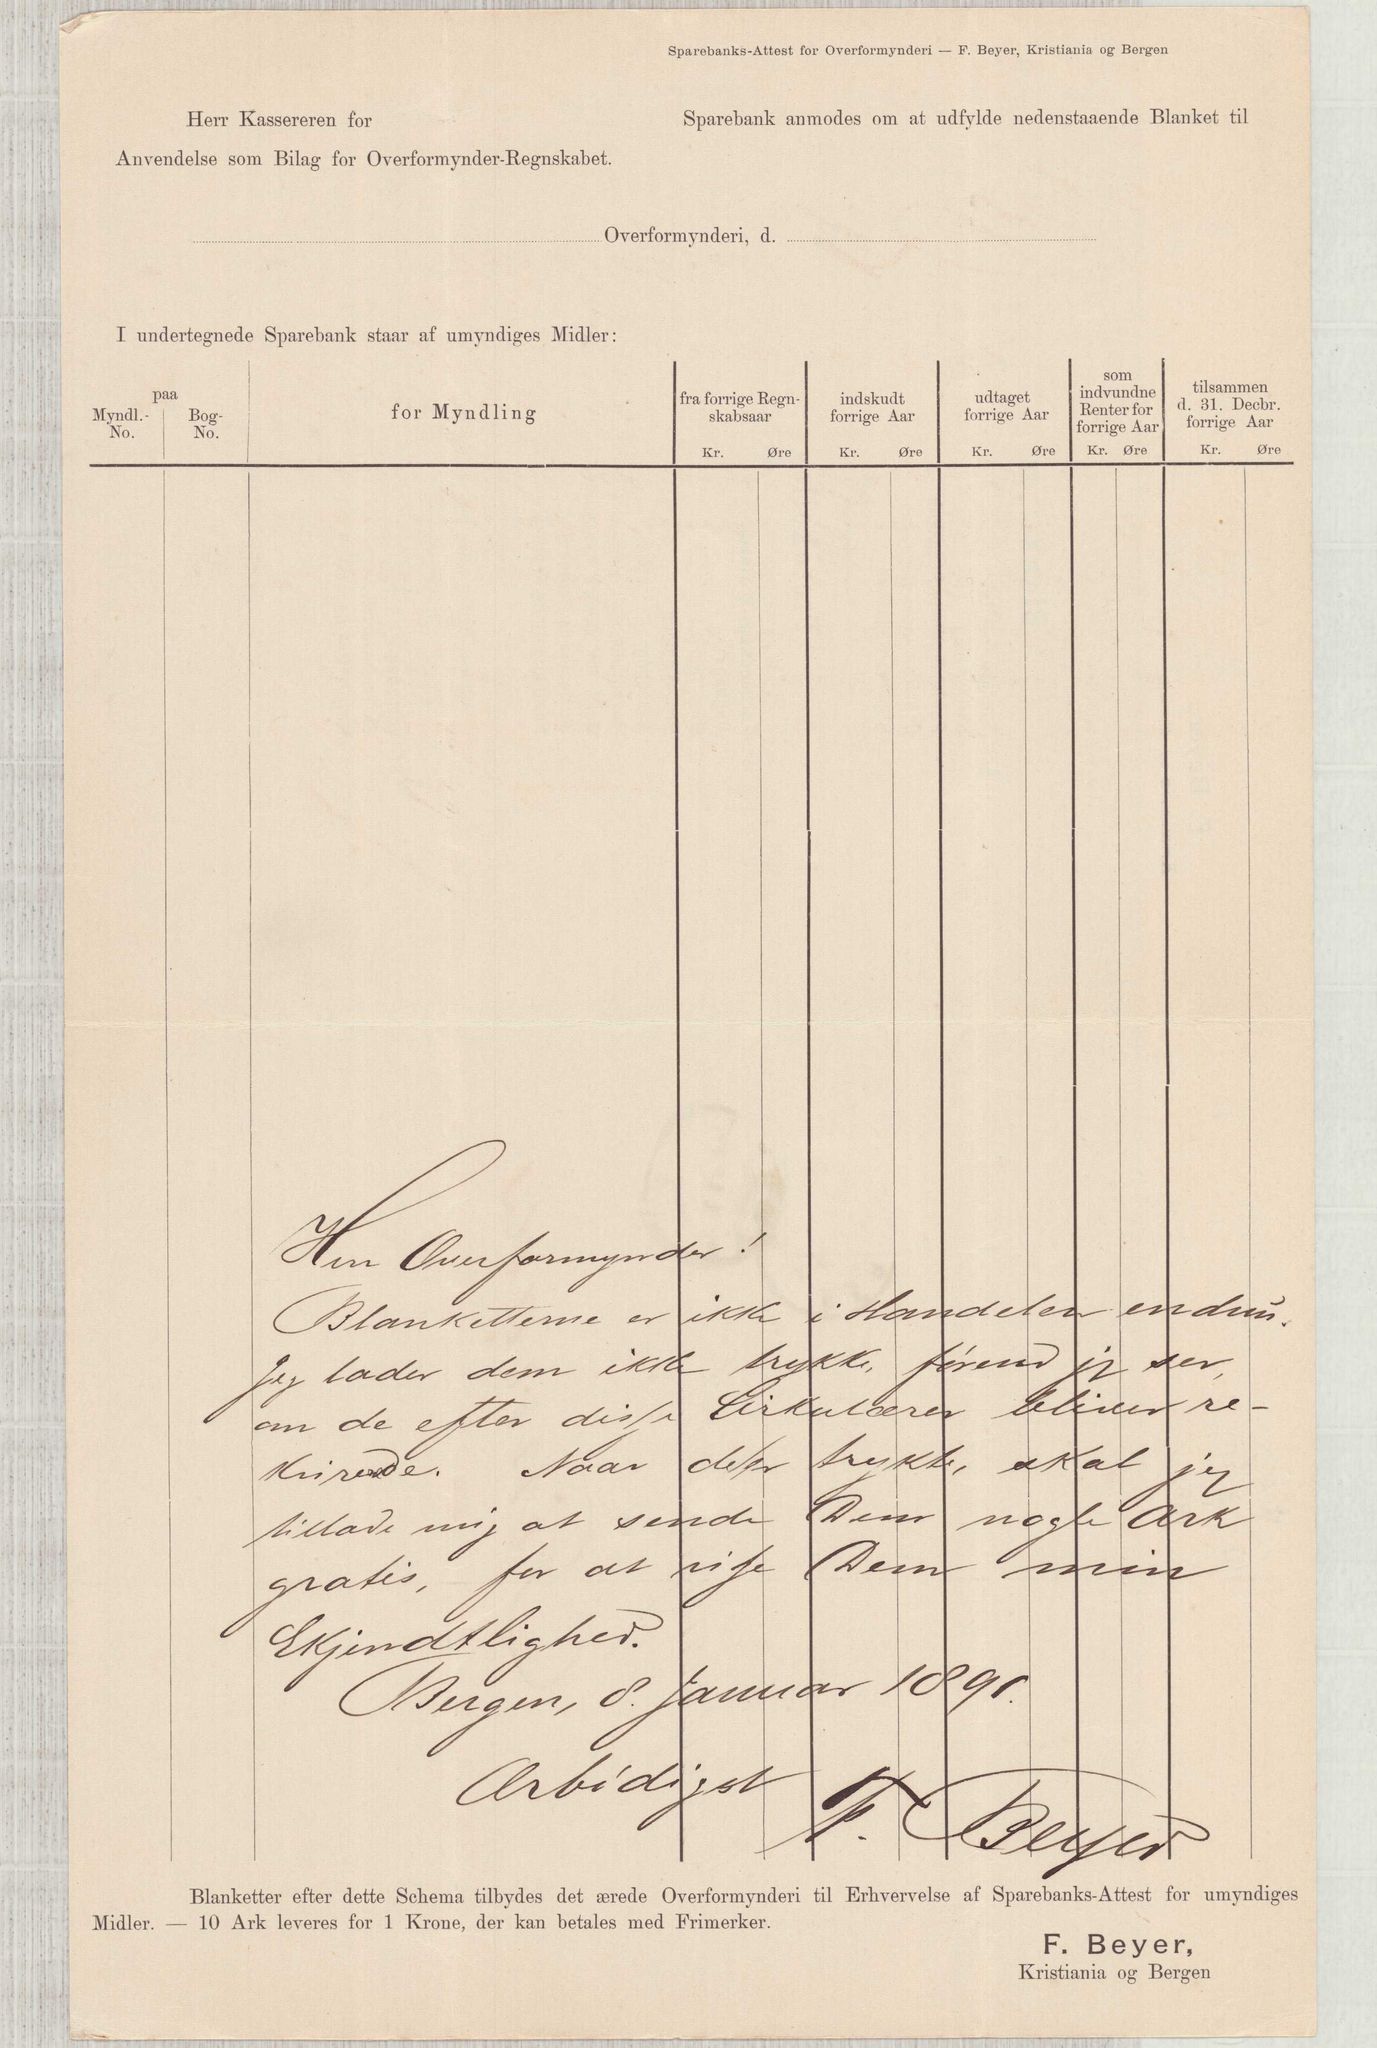 Sparebanks-Attest for Overformynderi — F. Beyer, Kristiania og Bergen
Herr Kassereren for Sparebank anmodes om at udfylde nedenstaaende Blanket til
Anvendelse som Bilag for Overformynder-Regnskabet.
Overformynderi, d.
I undertegnede Sparebank staar af umyndiges Midler:
paa
Myndl.-No.
Bog-No.
for Myndling
fra forrige Regn-
skabsaar
Kr. Øre
indskudt
forrige Aar
Kr. Øre
udtaget
forrige Aar
Kr. Øre
som
indvundne
Renter for
forrige Aar
Kr. Øre
tilsammen
d. 31. Decbr.
forrige Aar
Kr. Øre
Herr Overformynder!
Blanketterne er ikke i Handelen endnu.
Jeg lader dem ikke trykke, førend jeg ser,
om de efter disse Cirkulærer bliver re-
kvirerede. Naar de er trykte, skal jeg
tillade mig at sende Dem nogle Ark
gratis, for at vise Dem min
Erkjendtlighed.
Bergen, 8. Januar 1891.
Ærbødigst
F. Beyer
Blanketter efter dette Schema tilbydes det ærede Overformynderi til Erhvervelse af Sparebanks-Attest for umyndiges
Midler. — 10 Ark leveres for 1 Krone, der kan betales med Frimerker.
F. Beyer,
Kristiania og Bergen